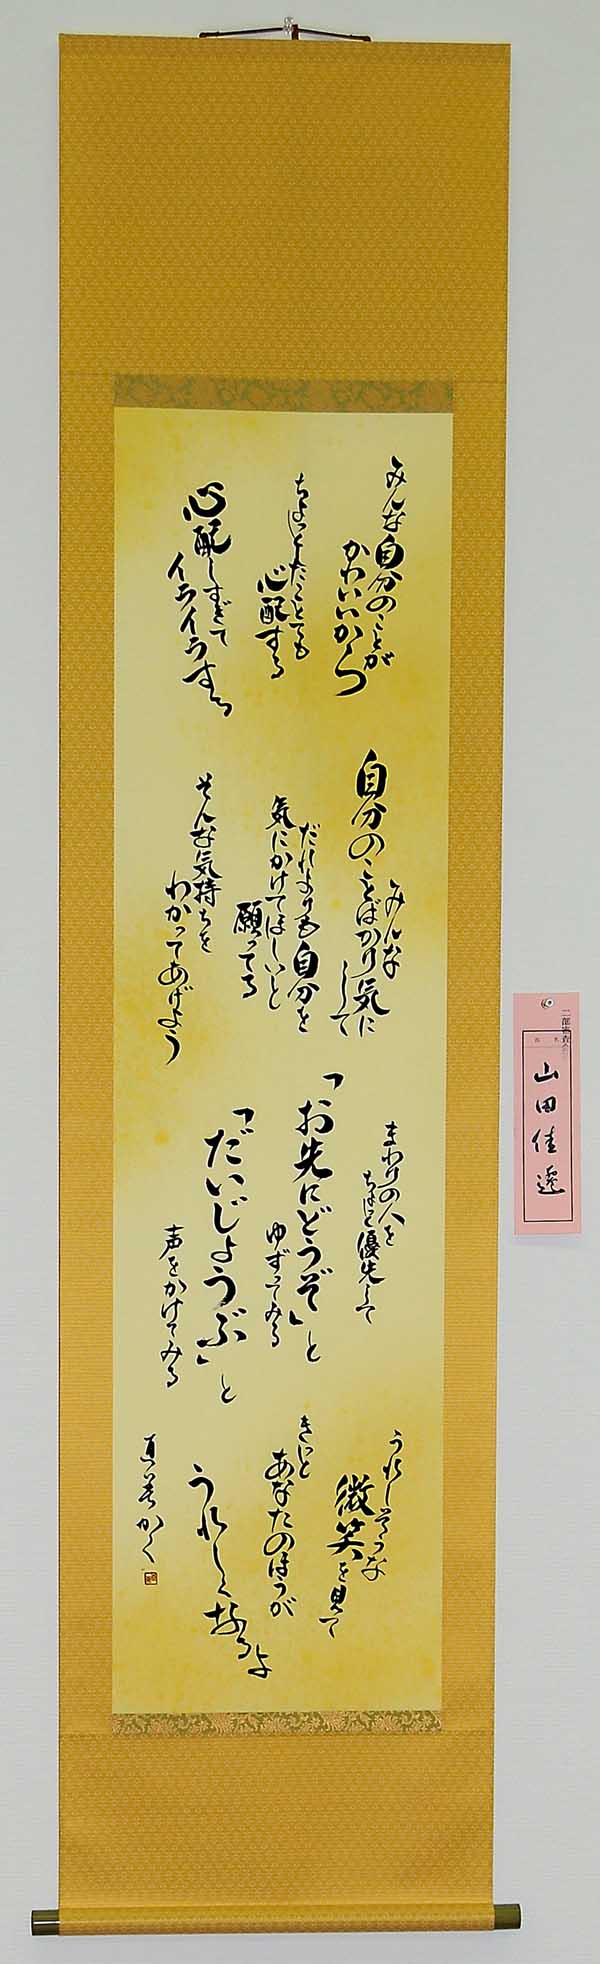 みんな自分のことが
かわいいから
ちょっとしたことでも
心配する
心配しすぎて
イライラする
みんな
自分のことばかり気に
して
だれよりも自分を
気にかけてほしいと
願ってる
そんな気持ちを
わかってあげよう
まわりの人を
ちょっと優先して
「お先にどうぞ」と
ゆずってみる
「だいじょうぶ」と
声をかけてみる
うれしそうな
微笑を見て
きっと
あなたのほうが
うれしくなるよ
かく
二部審査会
山田佳遷